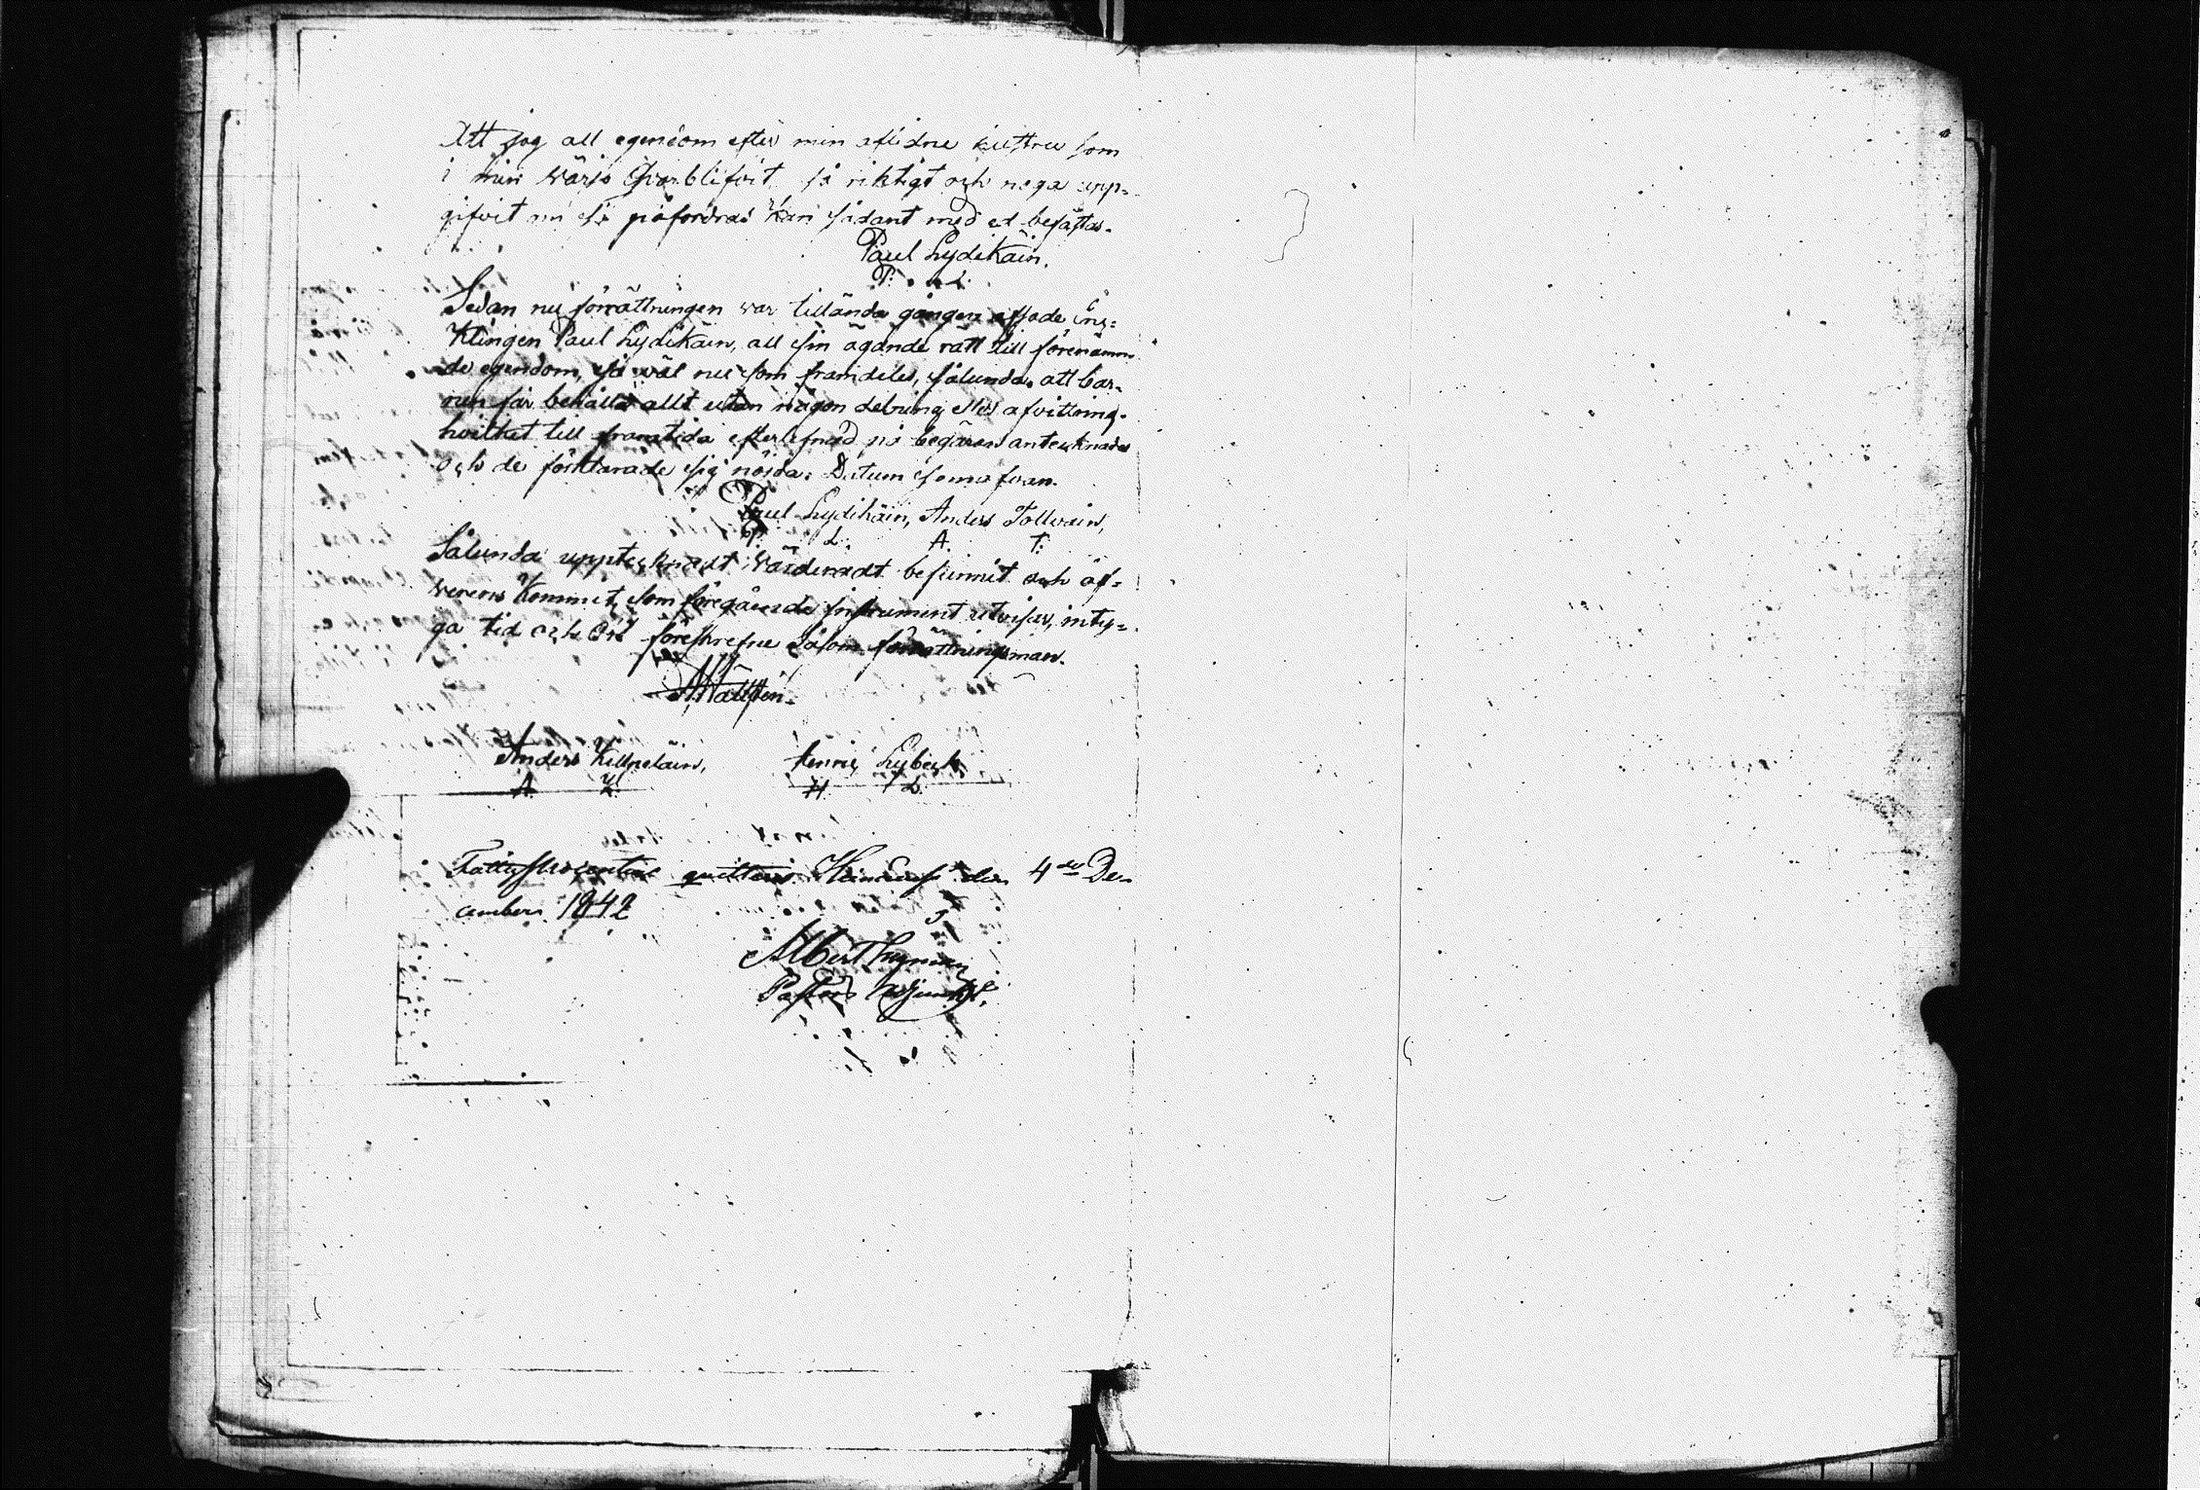 Att jag all egendom efter min aflidne hustru som
i min wärjo Qvarblifvit så riktigt och noga upp=
gifvit att så påfordras kan sådant med ed befästas.
Paul Lydikäin.
P. L.
Sedan nu förrättningen war tilländа gången afsade Enk=
klingen Paul Lydikäin, all sin ägande rätt till förenämn
de egendom, så wäl nu som framdeles, sålunda, att bar=
nen får behålla allt utan någon delning eller afvittring.
hvilket till framtida efterlefnad på begäran antecknades
och de förklarade sig nöjda. Datum som ofvan.
Paul Lydikäin, Anders Tollvain,
P. L. A. T.
Sålunda upptecknadt wärderadt befunnit och öf=
werens kommit, som föregående instrument utvisar, inty=
ga tid och Ort föreskrefne Såsom förrättningsman.
Anders Henric Lybeck
A. K. H. L.
Fattigprocenten quitteras den 4de De=
cember 1842
Albert
Pastors Adjunkt.